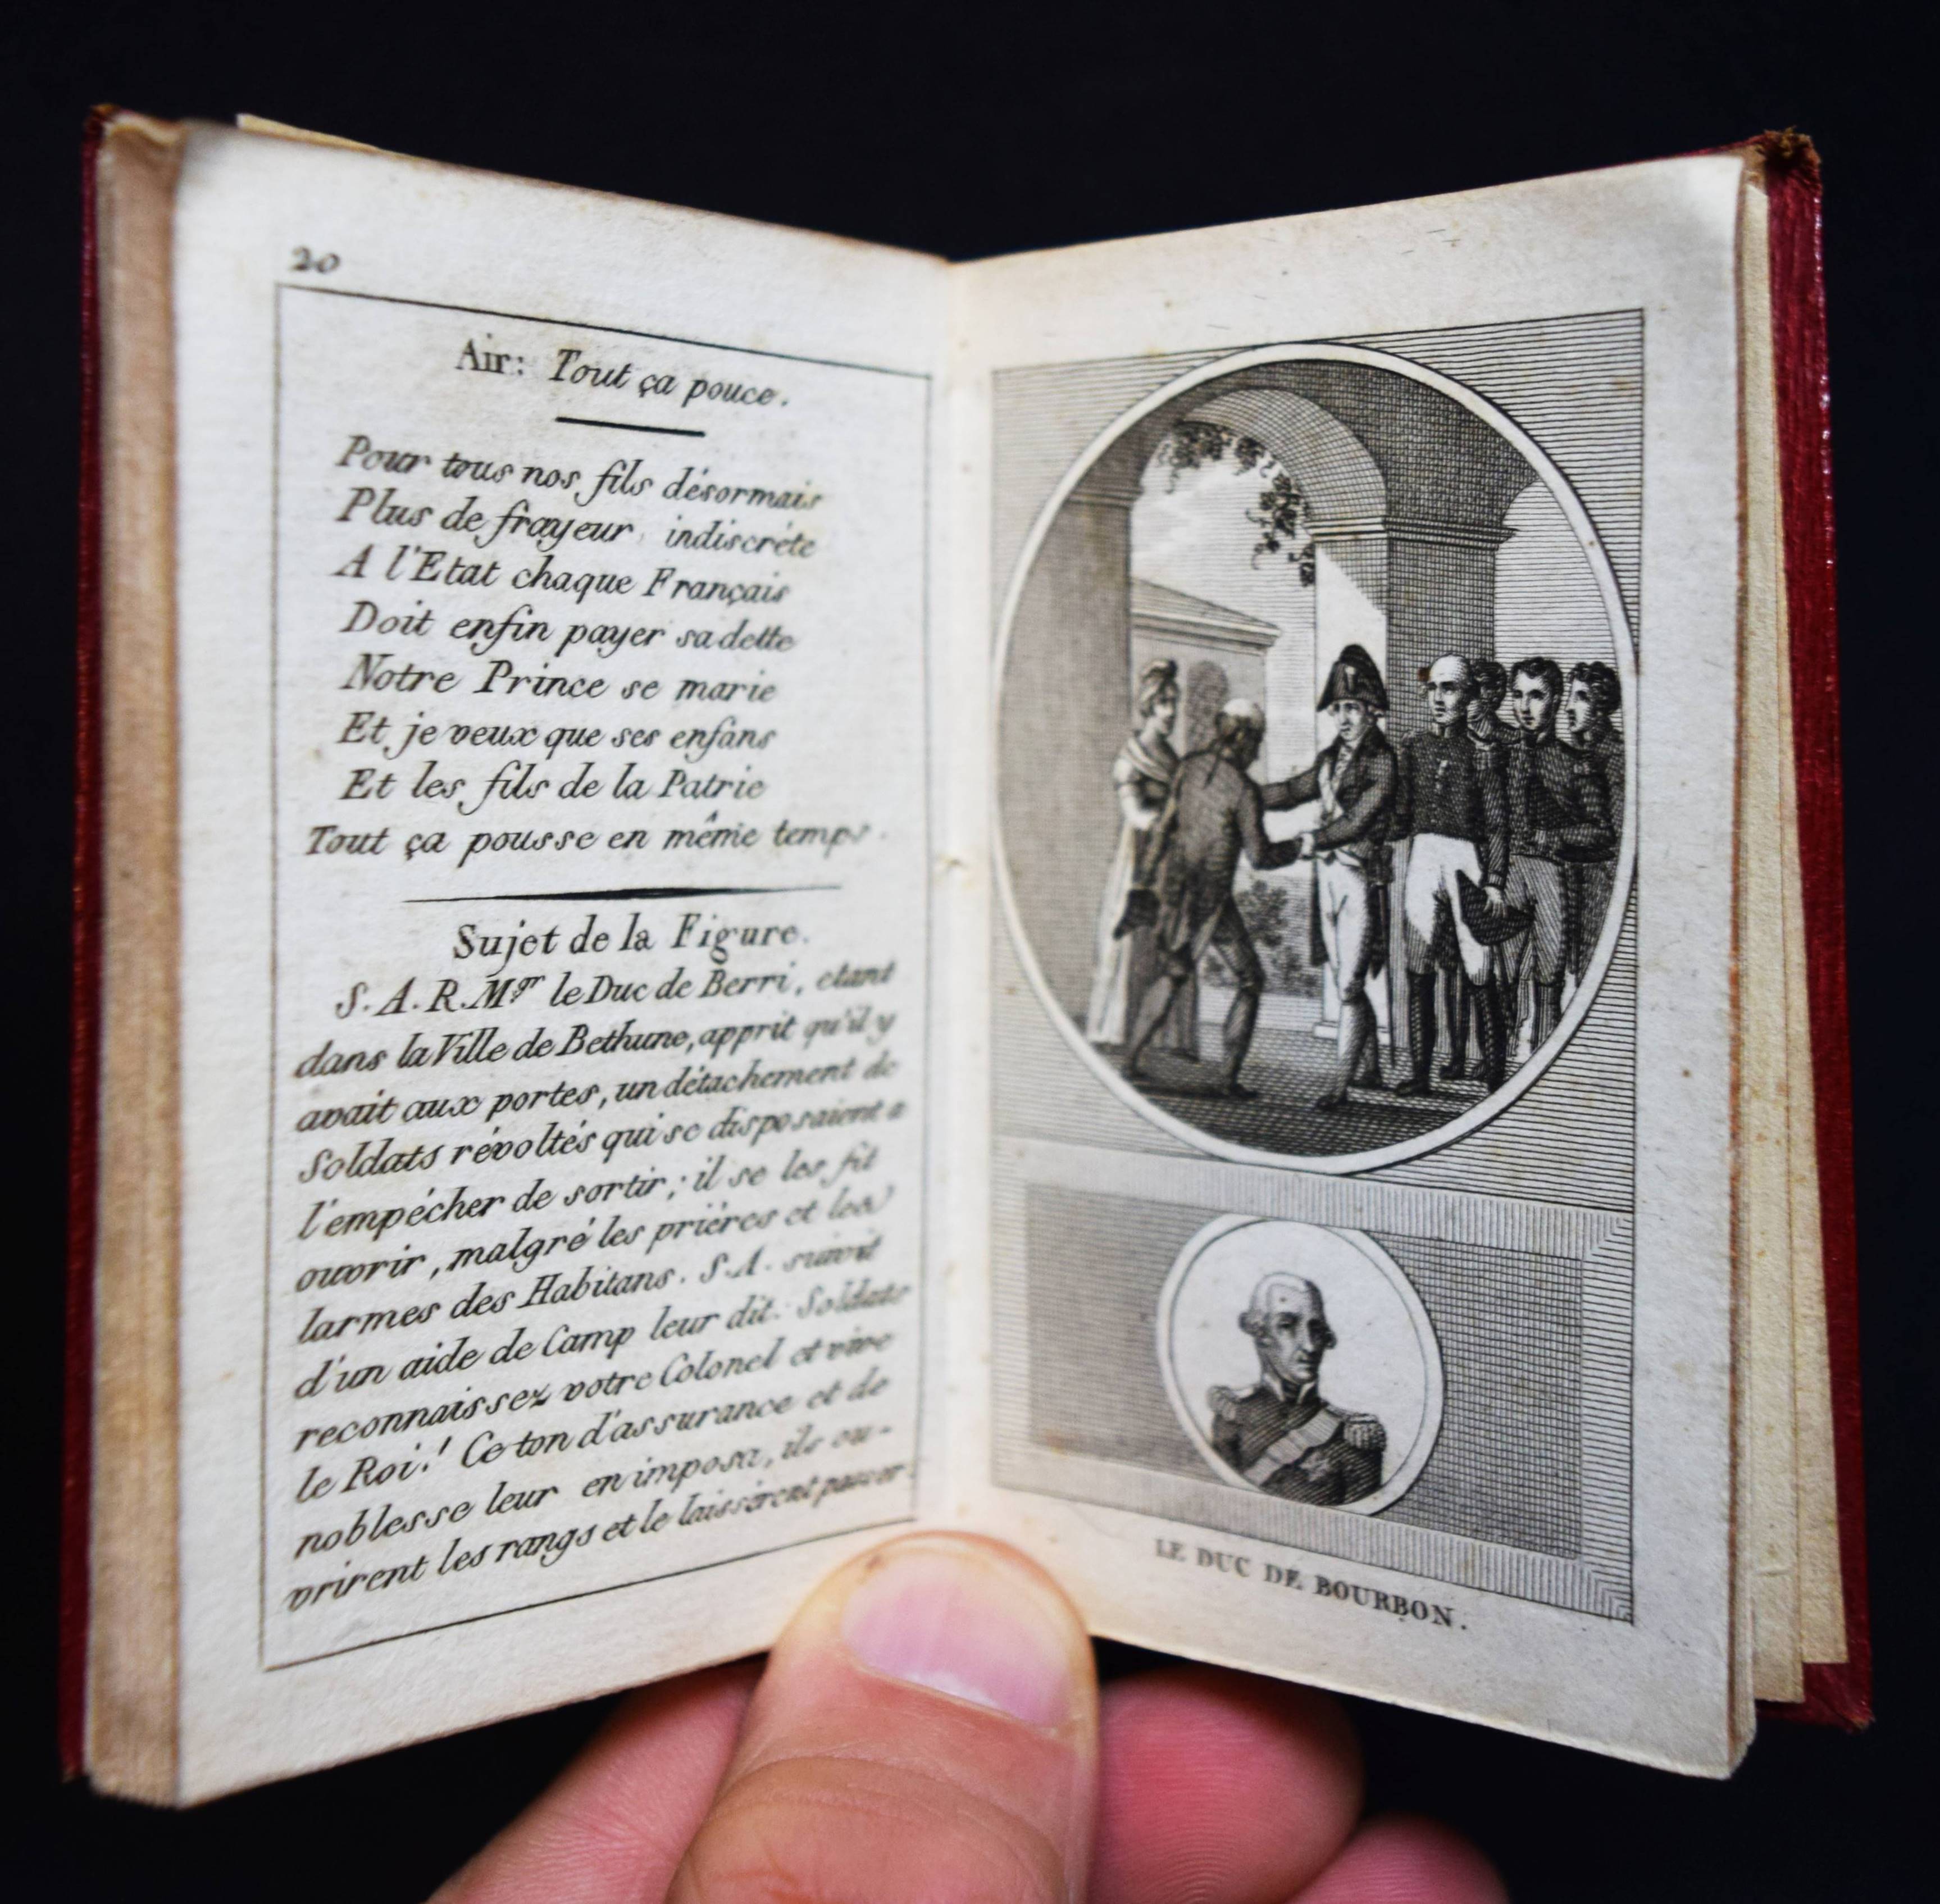 20
Air: Tout ça pouce.
Pour tous nos fils désormais
Plus de frayeur indiscréte
A l'Etat chaque Français
Doit enfin payer sa dette
Notre Prince se marie
Et je veux que ses enfans
Et les fils de la Patrie
Tout ça pousse en même temps.
Sujet de la Figure.
S.A.R.Mgr le Duc de Berri, etant
dans la Ville de Bethune, apprit qu'il y
avait aux portes, un détachement de
Soldats révoltés qui se disposaient a
l'empécher de sortir; il se les fit
ouvrir, malgré les priéres et les
larmes des Habitans. S.A. suivit
d'un aide de Camp leur dit: Soldats
reconnaissez votre Colonel et vive
le Roi! Ce ton d'assurance et de
noblesse leur en imposa, ils ou-
vrirent les rangs et le laissérent passer.
LE DUC DE BOURBON.